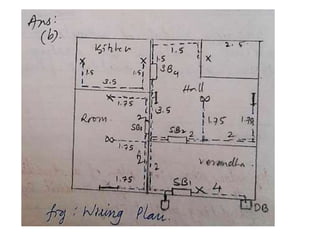 Ans:
(b).
Kitchen
1.5
2.5
1.5
1.5
1.5
SB4
3.5
Hall
1.75
3.5
Room
2
SB3
1.75
1.75
SB2
2
2
1.75
2
2
Verandha
1.75
SB1
4
DB
fig: Wiring Plan.